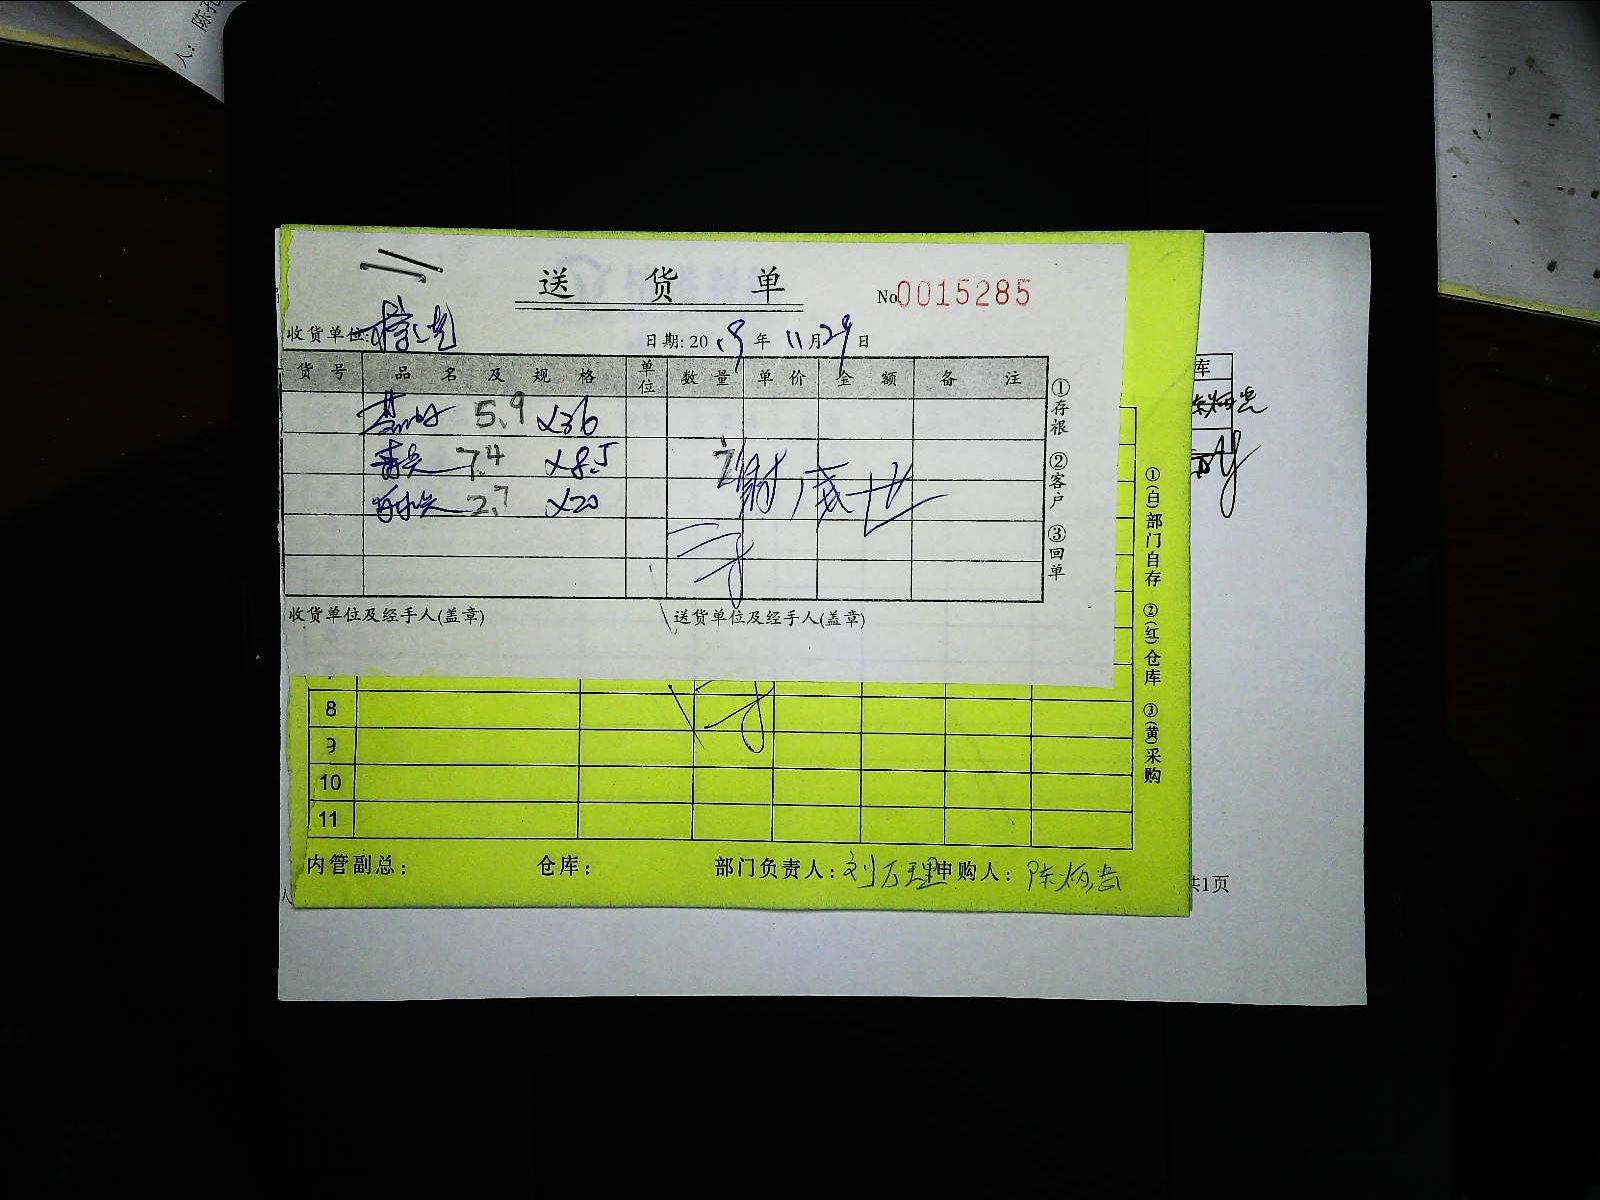 人：陈孔
送 货 单
No 0015285
收货单位:
日期: 2019年11月29日
货号 品名及规格 单位 数量 单价 金额 备注
5.9 ×36
青尖 7.4 ×8.5
2.7 ×20
①存根 ②客户 ③回单
收货单位及经手人(盖章) 送货单位及经手人(盖章)
8
9
10
11
内管副总： 仓库： 部门负责人：刘万理 申购人：陈炳尝
①(白)部门自存 ②(红)仓库 ③(黄)采购
库
共1页